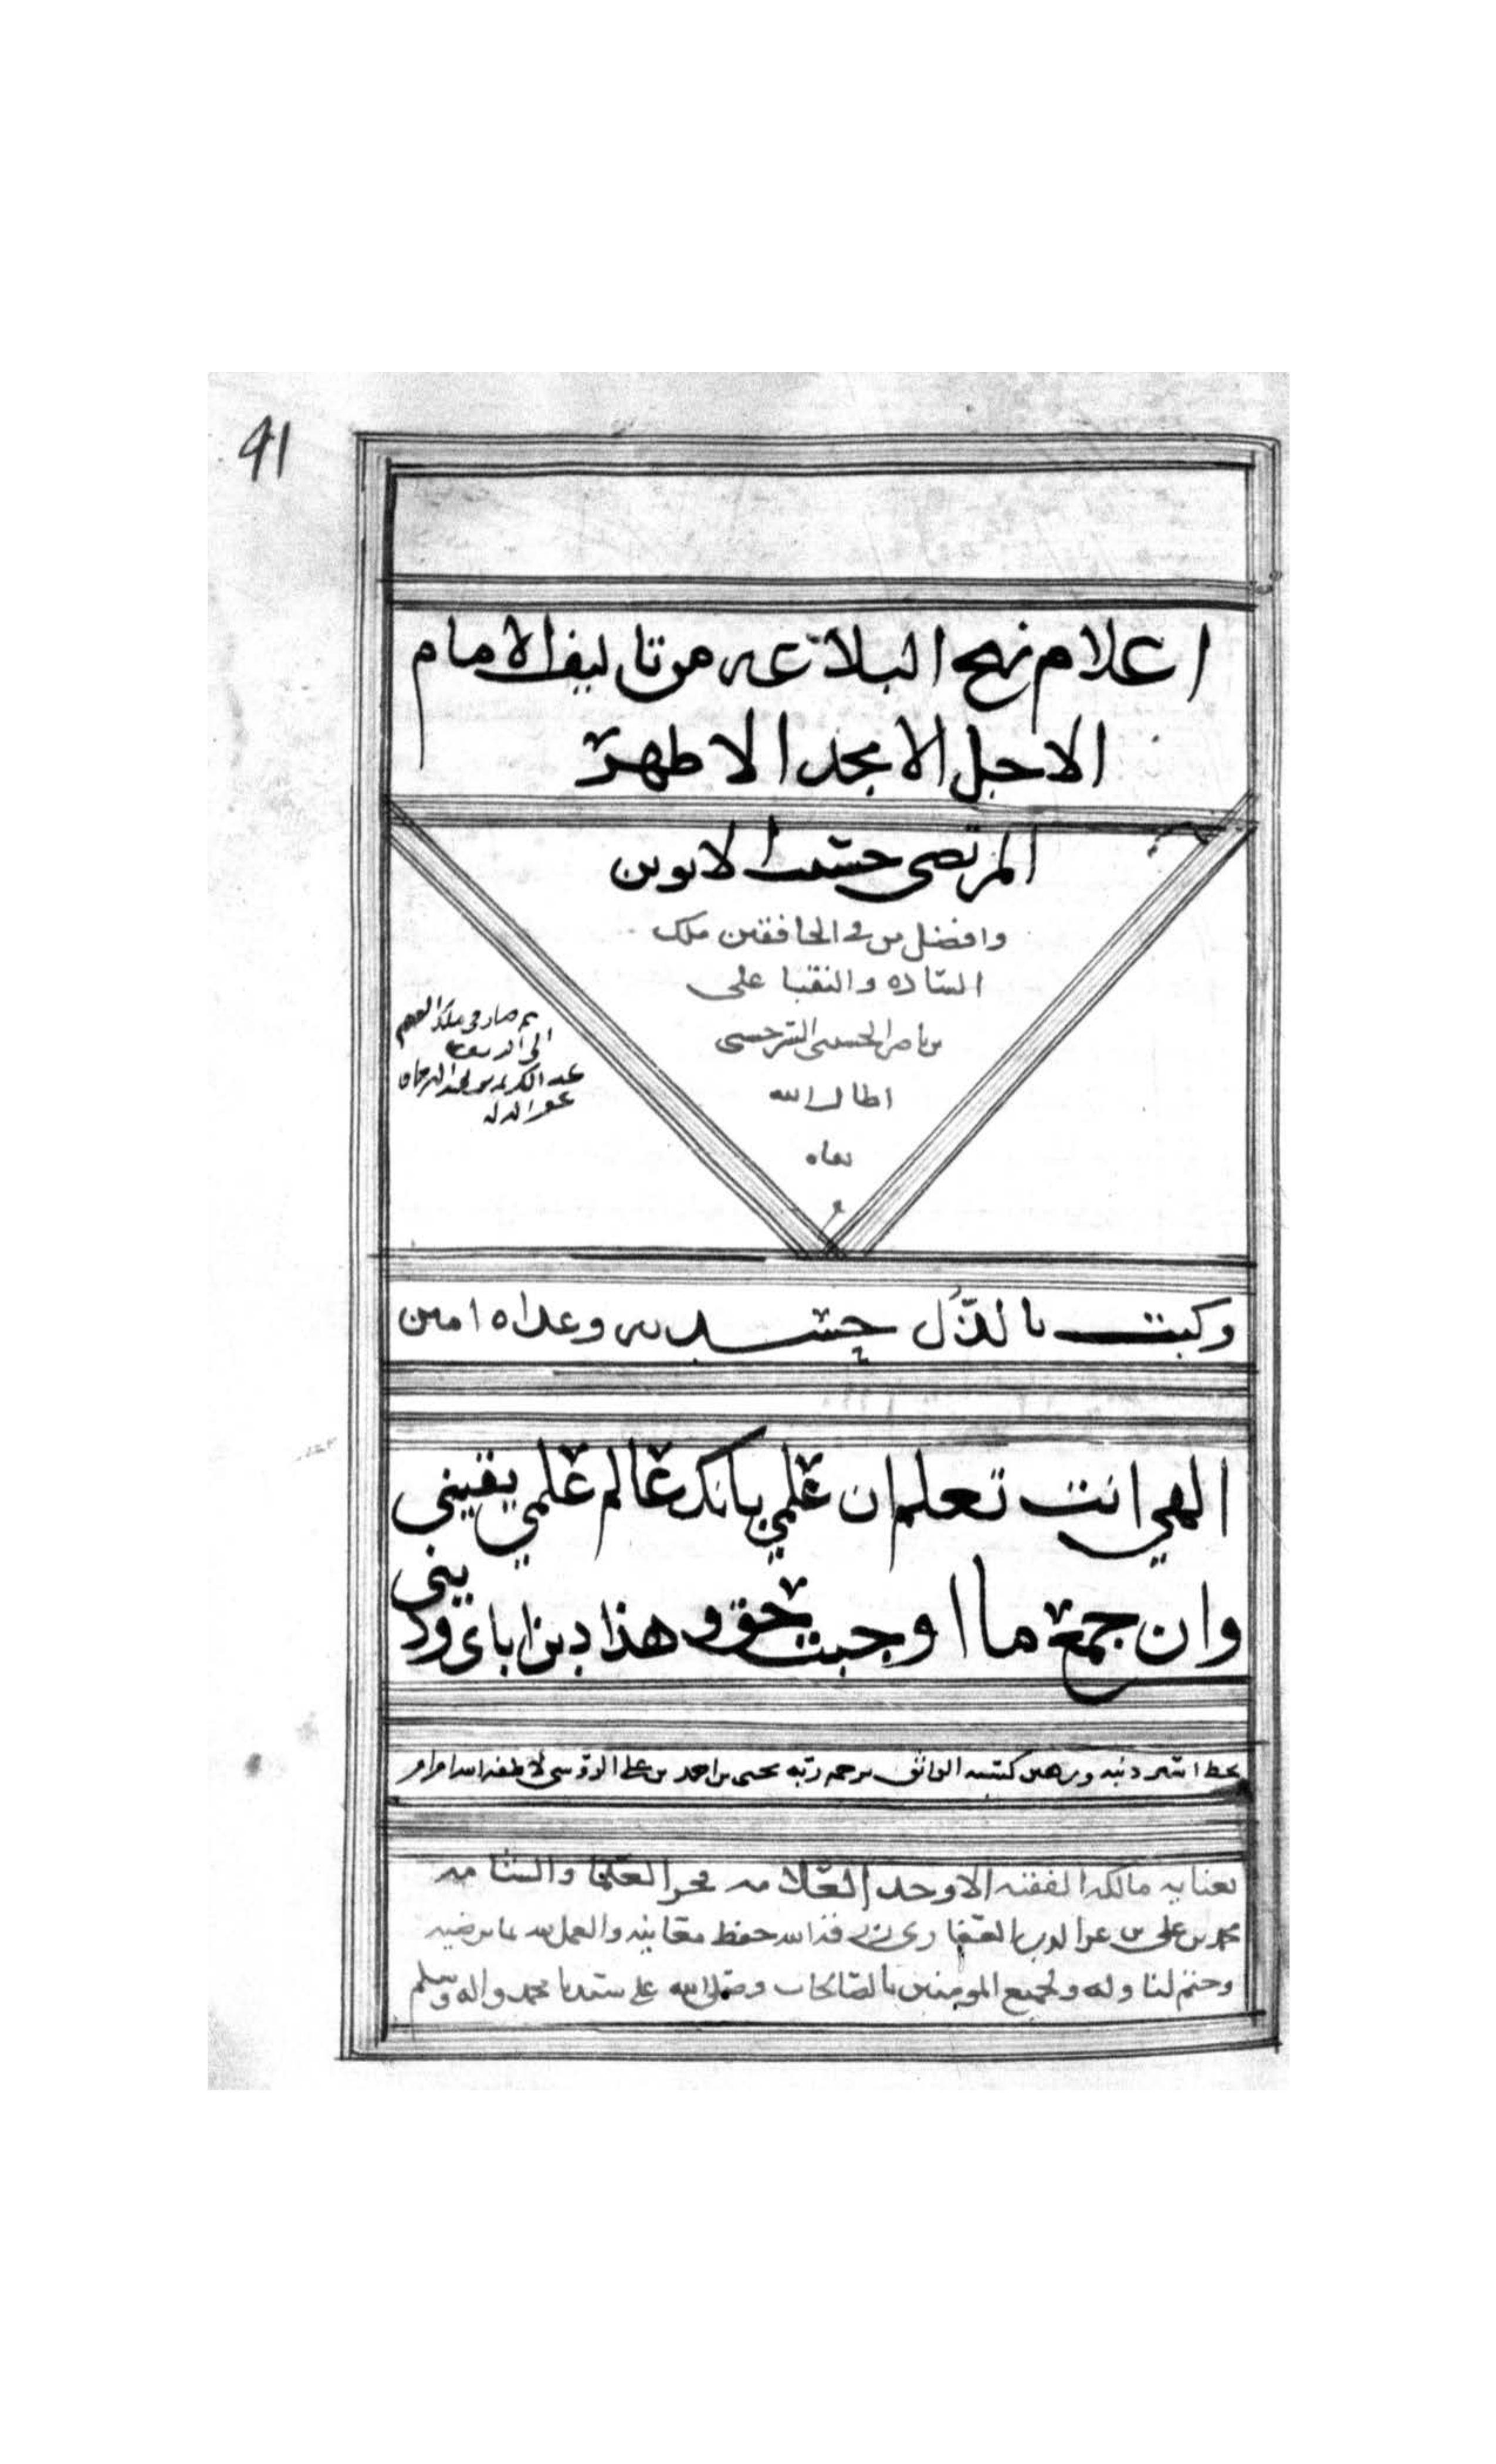 41
اعلام نهج البلاغه من تاليف الامام
الاجل الامجد الاطهر
المرتضى حسيب الابوين
وافضل من في الخافقين ملك
الساده والنقبا على
بن ناصر الحسيني السرخسي
اطال الله
بقاه
ثم صار في ملك
الى الله
عبد الكريم بن عبد الرحمان
وكبت بالذل حسدته وعداه امين
الهي انت تعلم ان علمي بانك عالم علمي يقيني
وان جمع ما اوجبت حق وهذا دين اباي وديني
بخط اسير ذنبه ورهين كسبه الواثق برحمة ربه يحيى بن احمد بن علي
بعنايه مالكه الفقيه الاوحد العلامه فخر العلما
محمد بن علي بن عز الدين حفظ معانيه والعمل بما يرضيه
وختم لنا وله ولجميع المومنين بالصالحات وصلى الله على سيدنا محمد واله وسلم